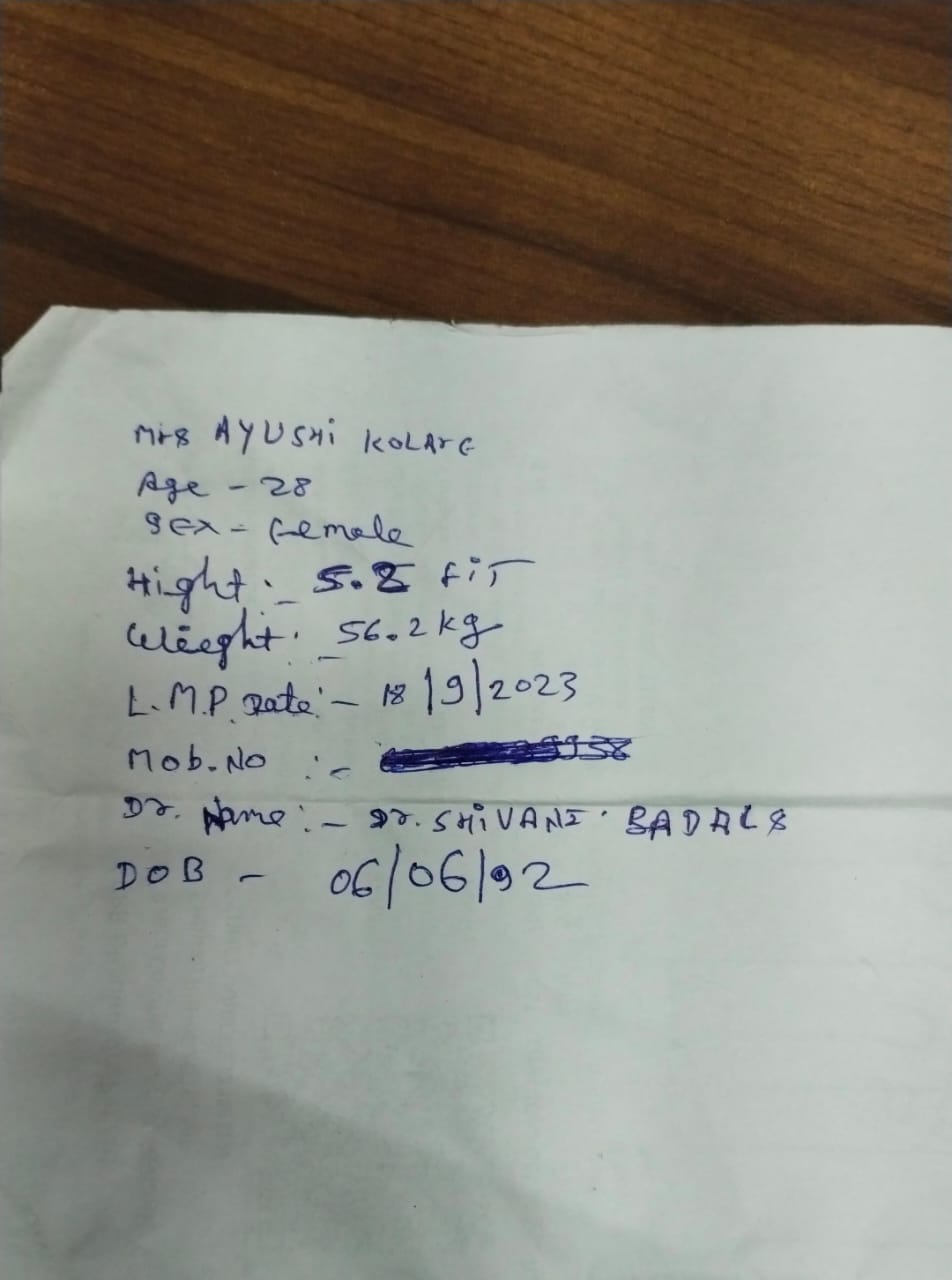 Mrs AYUSHi KOLArE
Age - 28
SEX - female
Hight :- 5.2 fiT
Weeght :- 56.2 kg
L.M.P. Date :- 18/9/2023
Mob. No :-
Dr. Name :- Dr. SHiVANI . BADALS
DOB - 06/06/92